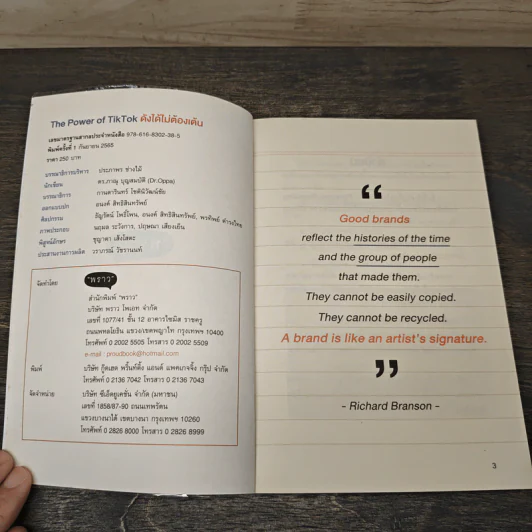 The Power of TikTok ดังได้ไม่ต้องเต้น
เลขมาตรฐานสากลประจำหนังสือ 978-616-8302-38-5
พิมพ์ครั้งที่ 1 กันยายน 2565
ราคา 250 บาท
บรรณาธิการบริหาร ประภาพร ช่างไม้
นักเขียน ดร.ภาณุ บุญสมบัติ (Dr.Oppa)
บรรณาธิการ กานดารินทร์ โชตินิวัฒน์ชัย
ออกแบบปก อนงค์ สิทธิสินทรัพย์
ศิลปกรรม ธัญรัตน์ โพธิ์ไพน, อนงค์ สิทธิสินทรัพย์, พรทิพย์ ดำรงไทย
ภาพประกอบ นฤมล ระวังการ, ปฤษณา เสียงเย็น
พิสูจน์อักษร ชุญาดา เส็งโสตะ
ประสานงานการผลิต วราภรณ์ วัชรานนท์
จัดทำโดย "พราว"
สำนักพิมพ์ "พราว"
บริษัท พราว โพเอท จำกัด
เลขที่ 1077/41 ชั้น 12 อาคารโชมิส ราชครู
ถนนพหลโยธิน แขวง/เขตพญาไท กรุงเทพฯ 10400
โทรศัพท์ 0 2002 5505 โทรสาร 0 2002 5509
e-mail : proudbook@hotmail.com
พิมพ์ บริษัท กู๊ดเฮด พริ้นท์ติ้ง แอนด์ แพคเกจจิ้ง กรุ๊ป จำกัด
โทรศัพท์ 0 2136 7042 โทรสาร 0 2136 7043
จัดจำหน่าย บริษัท ซีเอ็ดยูเคชั่น จำกัด (มหาชน)
เลขที่ 1858/87-90 ถนนเทพรัตน
แขวงบางนาใต้ เขตบางนา กรุงเทพฯ 10260
โทรศัพท์ 0 2826 8000 โทรสาร 0 2826 8999
“
Good brands
reflect the histories of the time
and the group of people
that made them.
They cannot be easily copied.
They cannot be recycled.
A brand is like an artist's signature.
”
- Richard Branson -
3